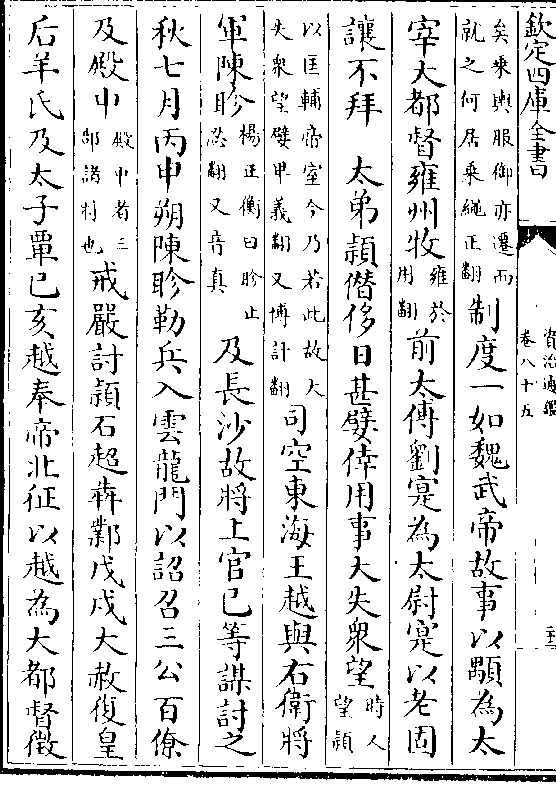 欽定四庫全書
資治通鑑
卷八十五
矣乘輿服御亦遷而
就之何居乘繩正翻
制度一如魏武帝故事以顒為太
宰大都督雍州牧
雍於
用翻
前太傅劉寔為太尉寔以老固
讓不拜　太弟穎僭侈日甚嬖倖用事大失衆望
時人
望穎
以匡輔帝室今乃若此故大
失衆望嬖甲義翻又博計翻
司空東海王越與右衛將
軍陳眕
楊正衡曰眕止
忍翻又音真
及長沙故將上官已等謀討之
秋七月丙申朔陳眕勒兵入雲龍門以詔召三公百僚
及殿中
殿中者三
部諸將也
戒嚴討穎石超犇鄴戊戌大赦復皇
后羊氏及太子覃已亥越奉帝北征以越為大都督徵